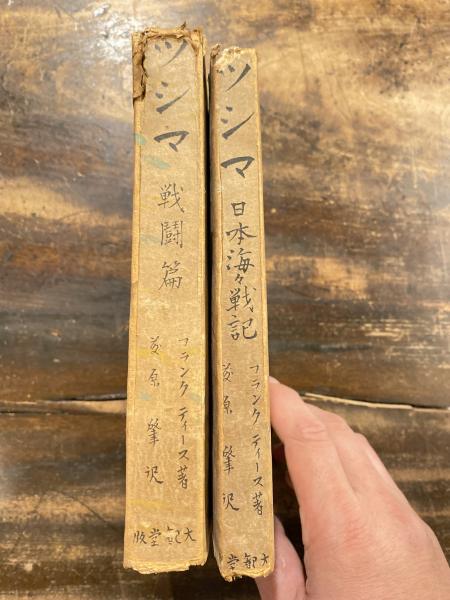 ツシマ
戦闘篇
フランク ティース著
原 肇 訳
大観堂版
ツシマ
日本海々戦記
フランク ティース著
原 肇 訳
大観堂